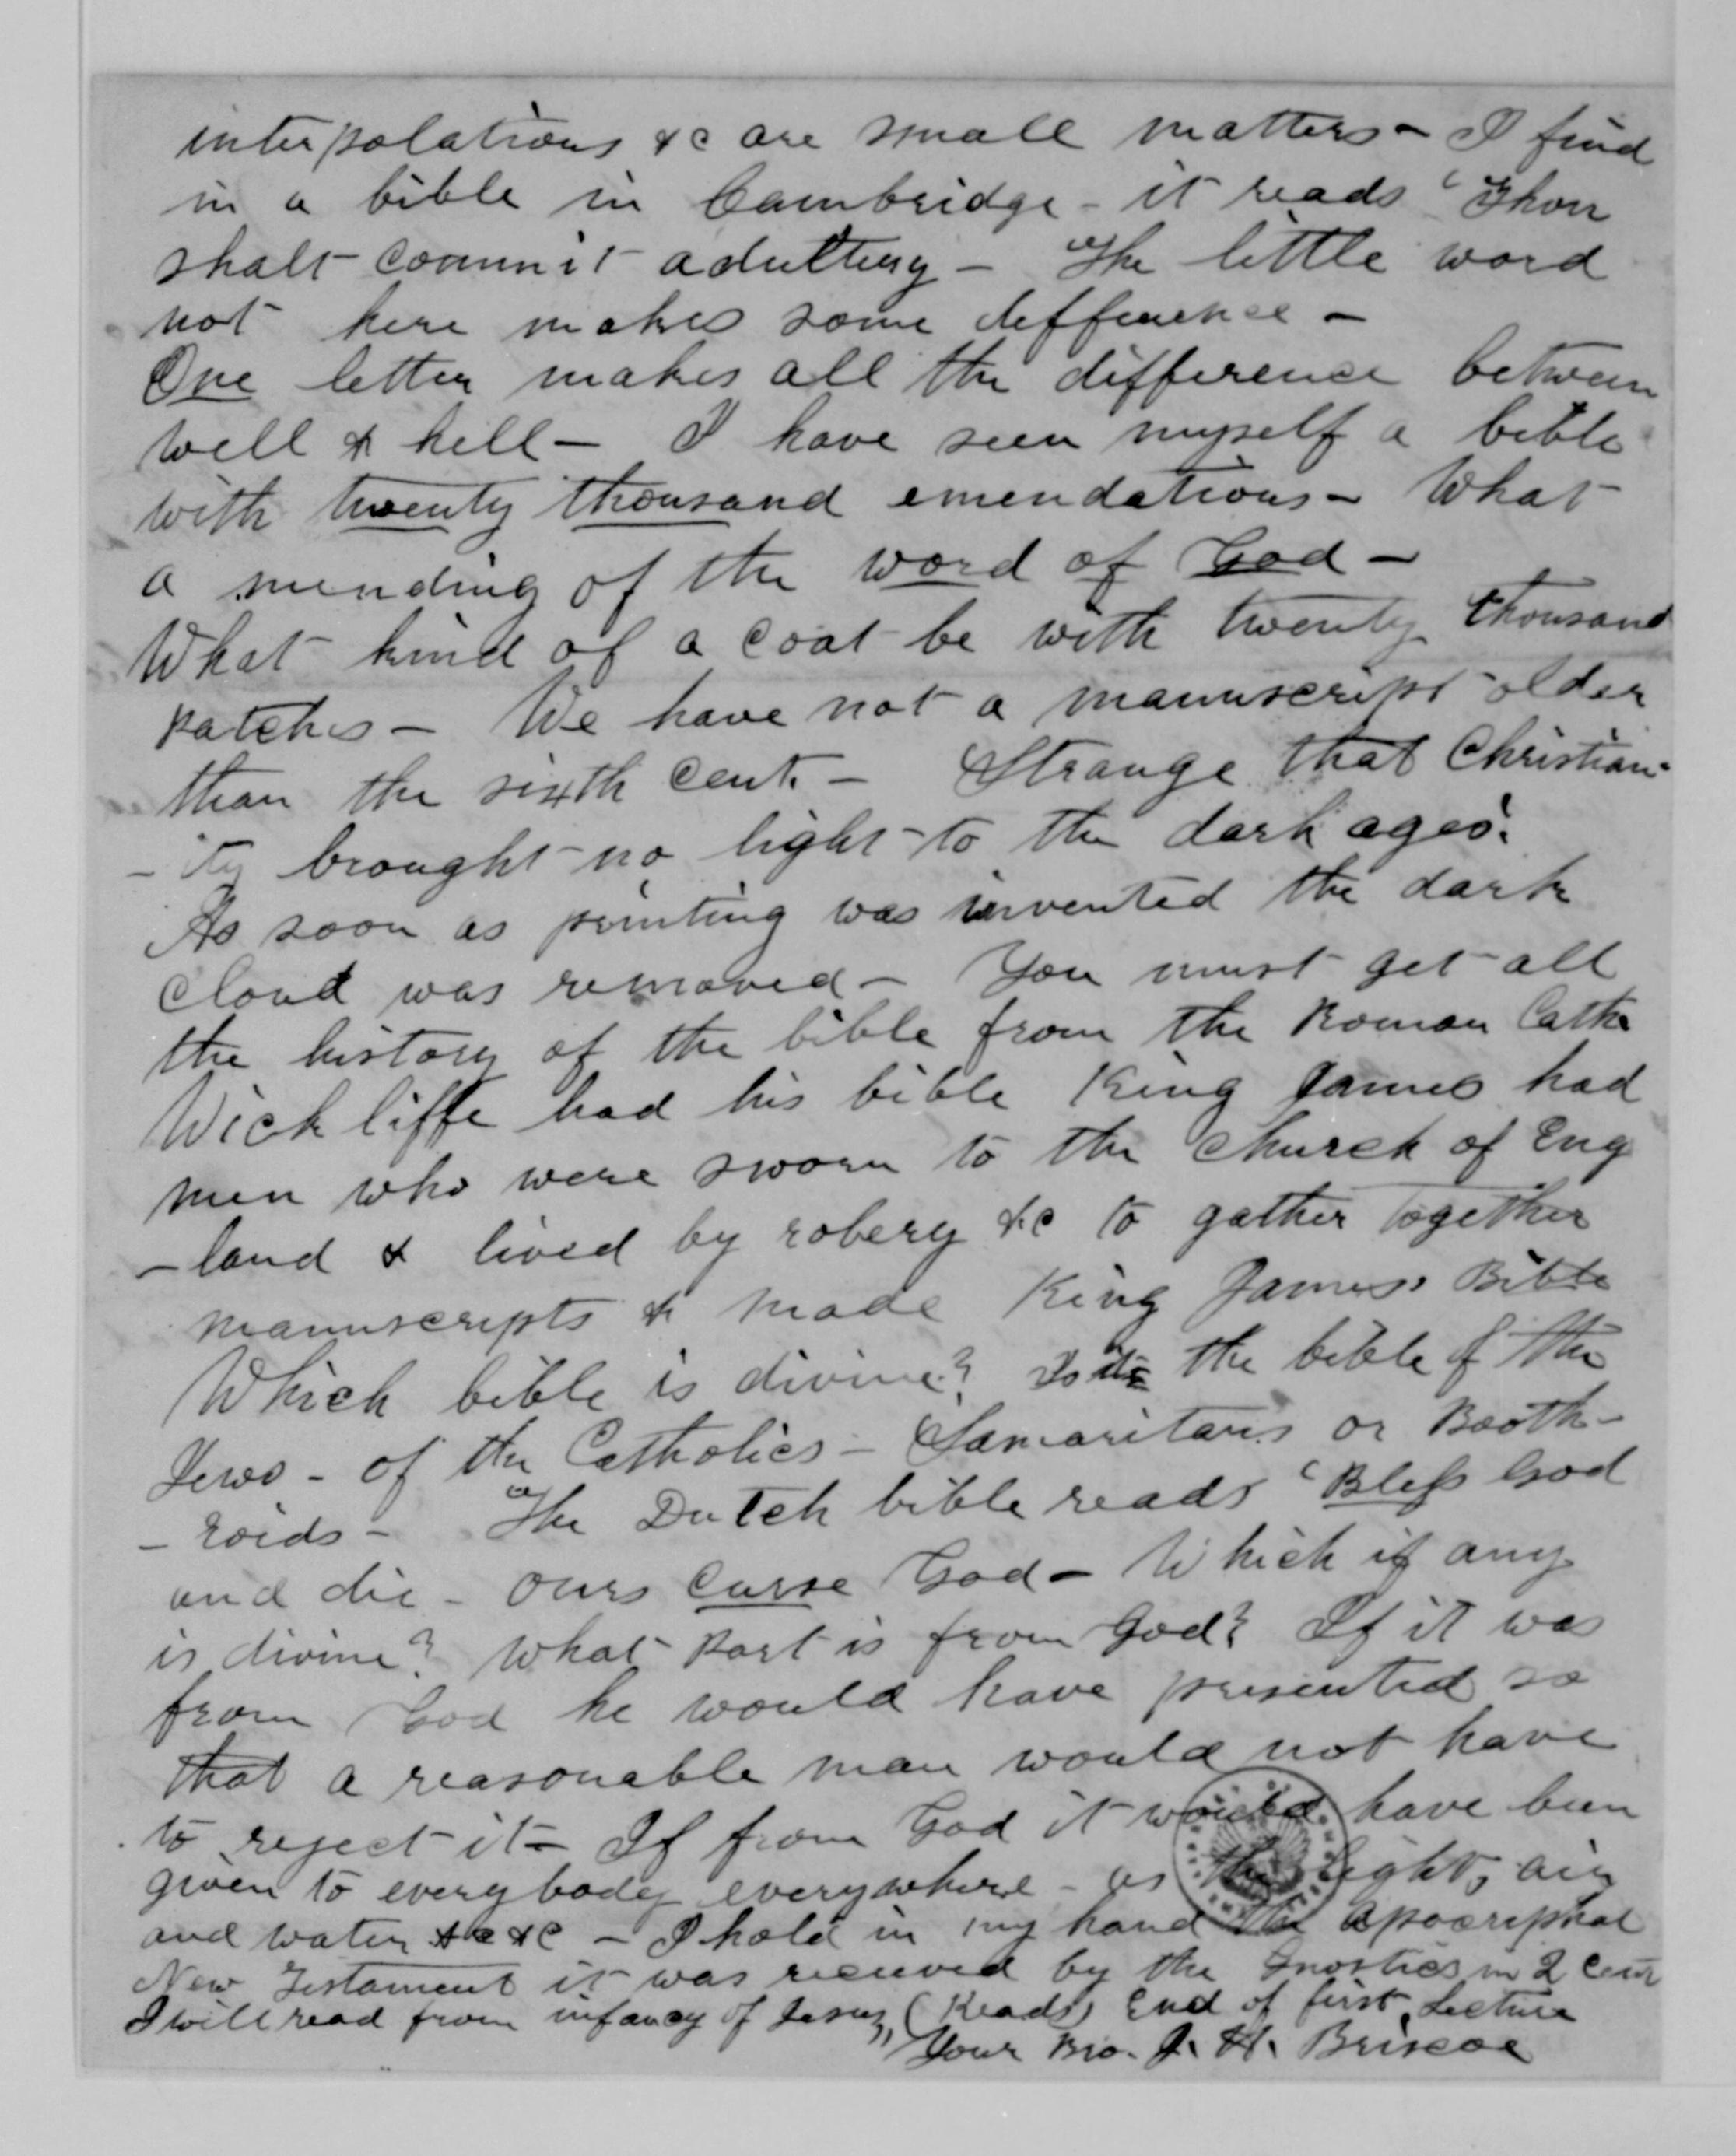 interpolations &c are small matters - I find
in a bible in Cambridge - it reads "Thou
shalt commit adultery - The little word
not here makes some difference -
One letter makes all the difference between
well & hell - I have seen myself a bible
with twenty thousand emendations - What
a mending of the word of God -
What kind of a coat be with twenty thousand
patches - We have not a manuscript older
than the sixth cent. - Strange that Christian-
-ity brought no light to the dark ages.
As soon as printing was invented the dark
cloud was removed - You must get all
the history of the bible from the Roman Catho
Wickliffe had his bible King James had
men who were sworn to the church of Eng
-land & lived by robery &c to gather together
manuscripts & made King James' Bible
Which bible is divine? Is it the bible of the
Jews - of the Catholics - Samaritans or Booth-
-roids - The Dutch bible reads "Bless God
and die - ours curse God - Which if any
is divine? What part is from God? If it was
from God he would have presented so
that a reasonable man would not have
to reject it - If from God it would have been
given to everybody everywhere - as the light, air
and water &c &c - I hold in my hand the Apocriphal
New Testament it was received by the Gnostics in 2 Cent
I will read from infancy of Jesus, (Reads) End of first Lecture
Your Bro. J. H. Briscoe